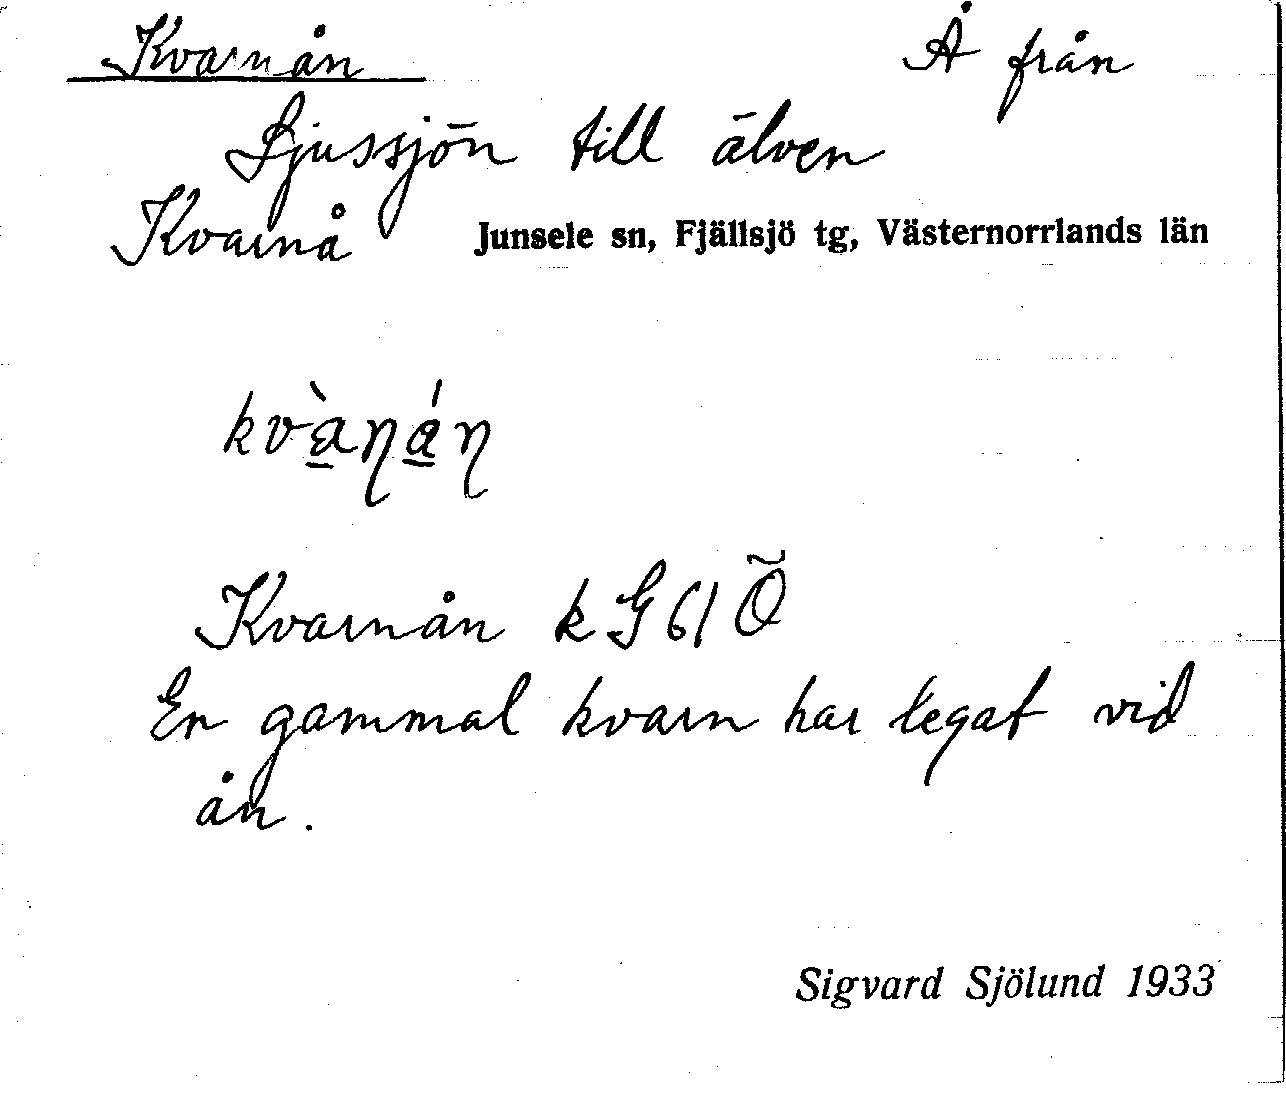 Kvarnån Å från
Ljussjön till älven
Kvarnå Junsele sn, Fjällsjö tg, Västernorrlands län
kvànán
Kvarnån k G 61 Õ
En gammal kvarn har legat vid
ån.
Sigvard Sjölund 1933